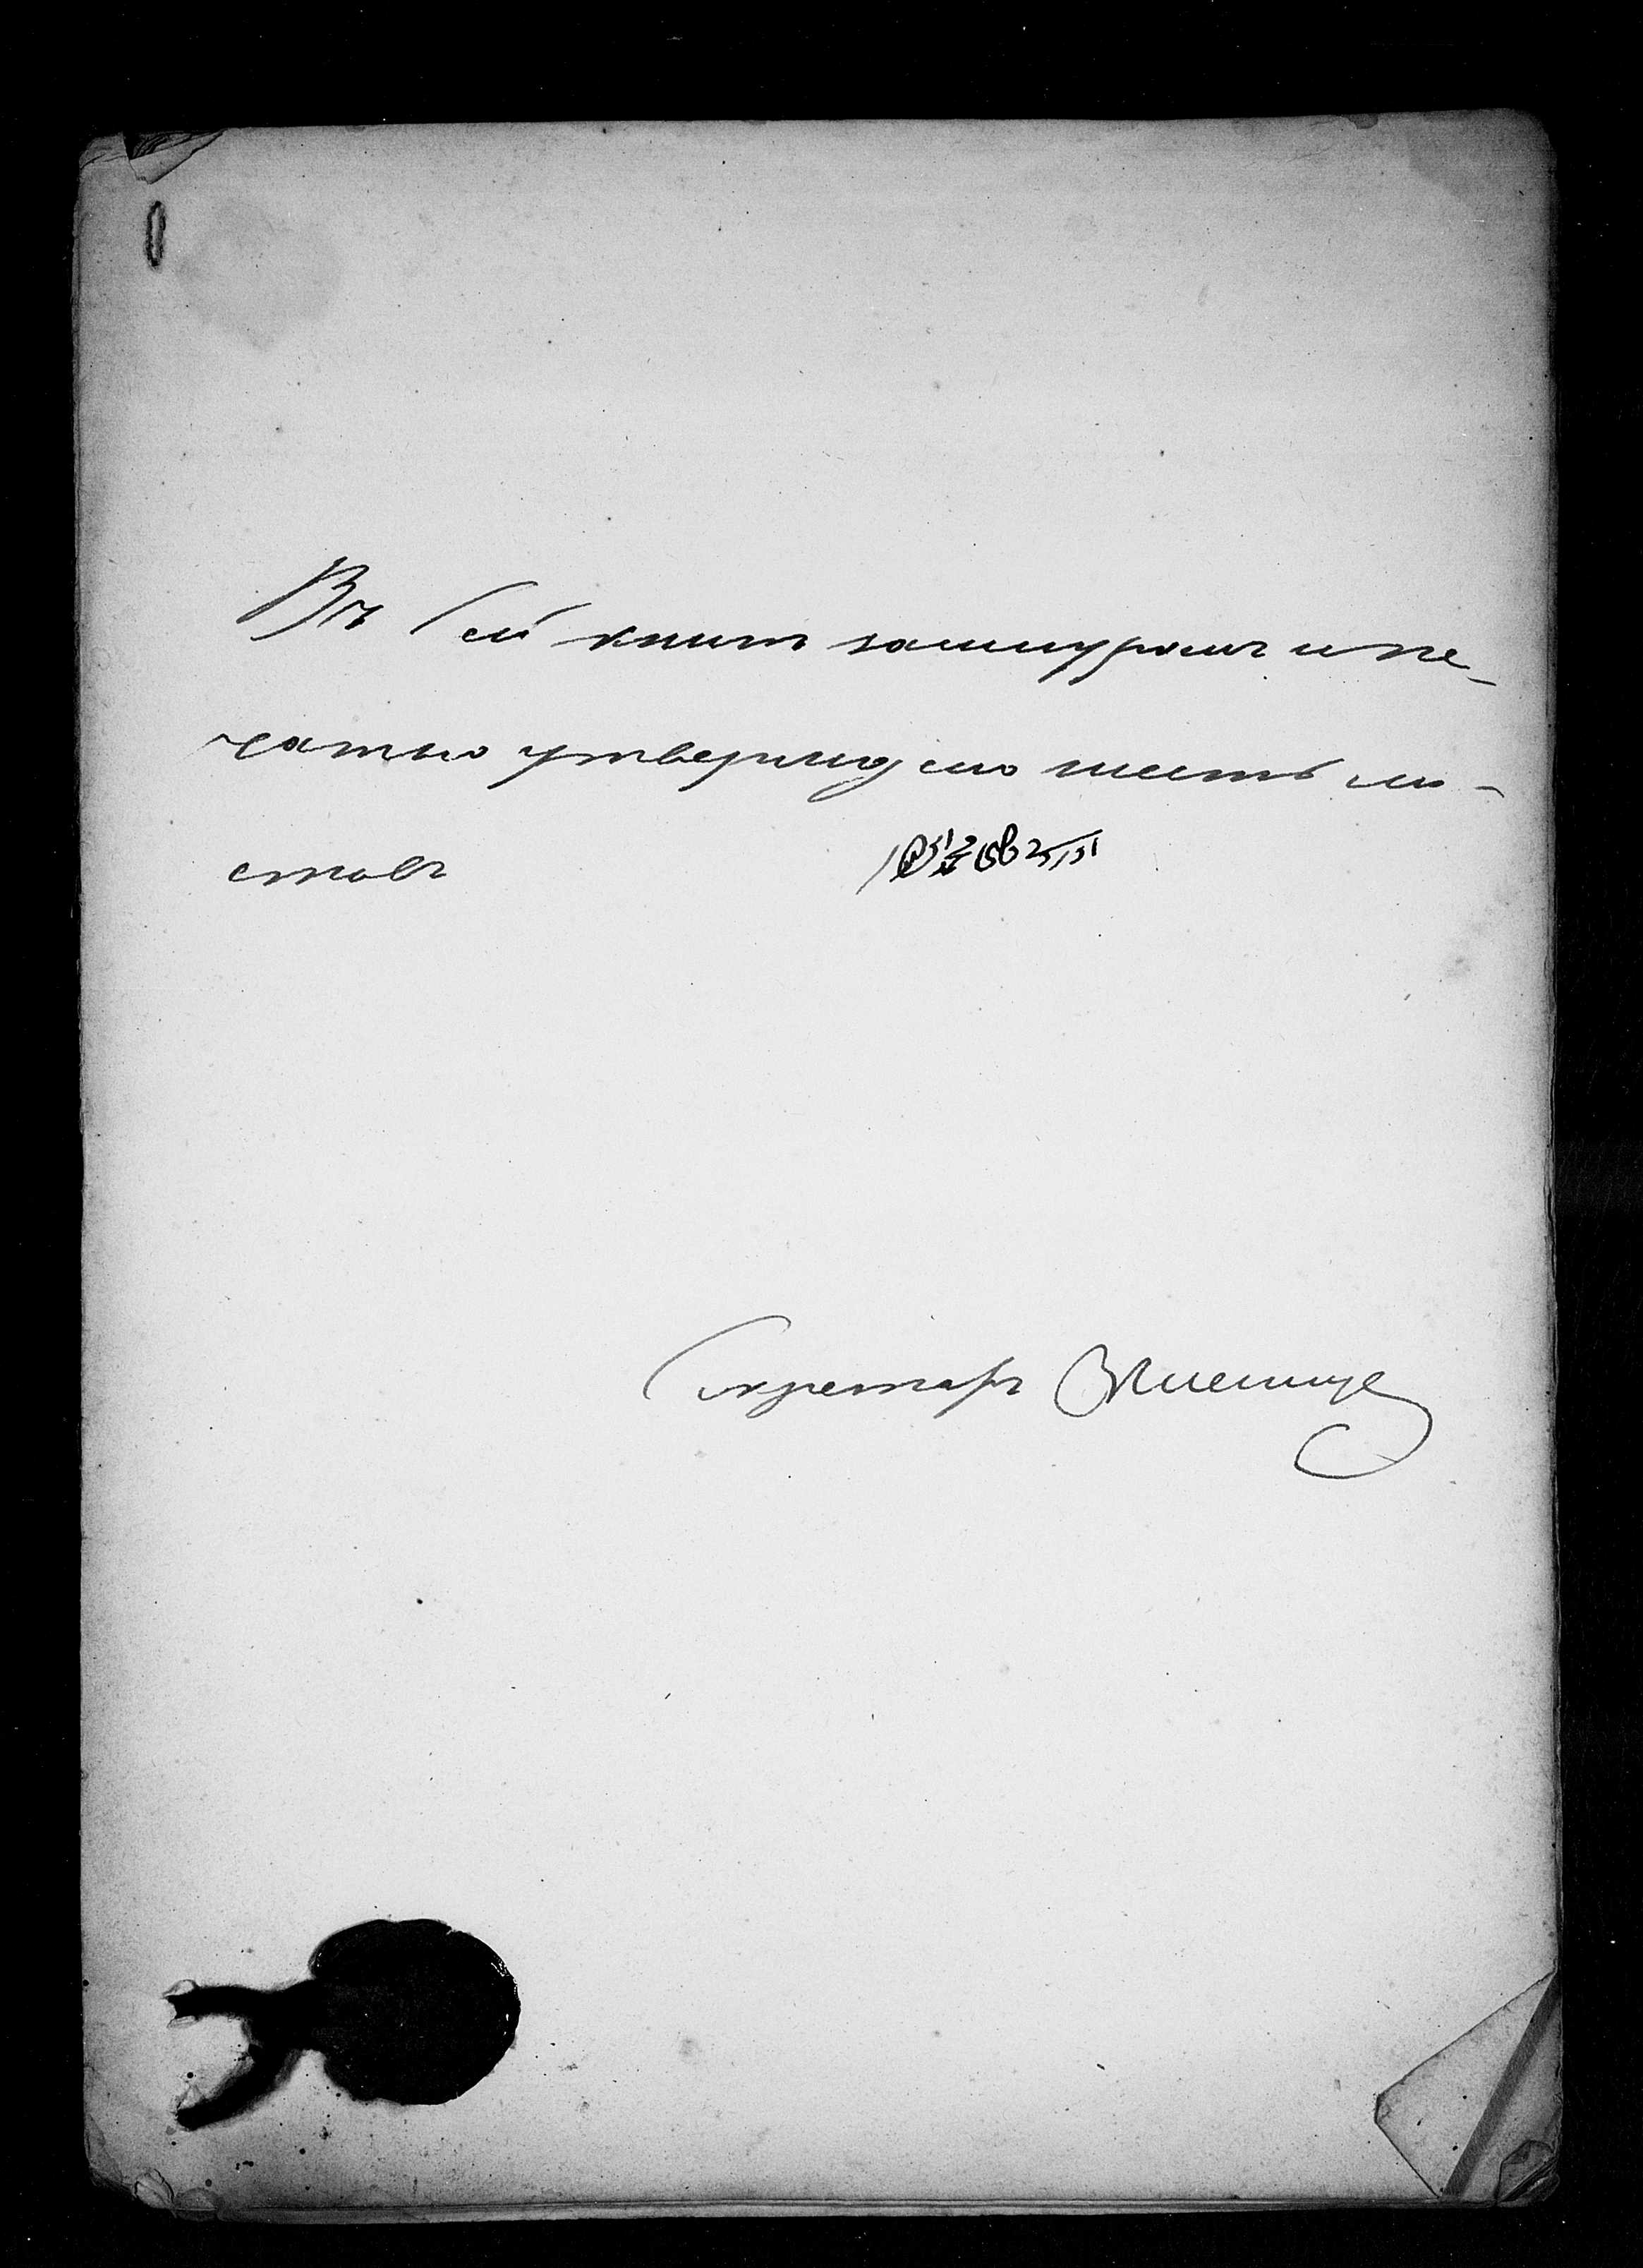 Въ сей книгѣ зашнуровано и пе-
чатью утверждено шесть ли-
стовъ
Секретарь